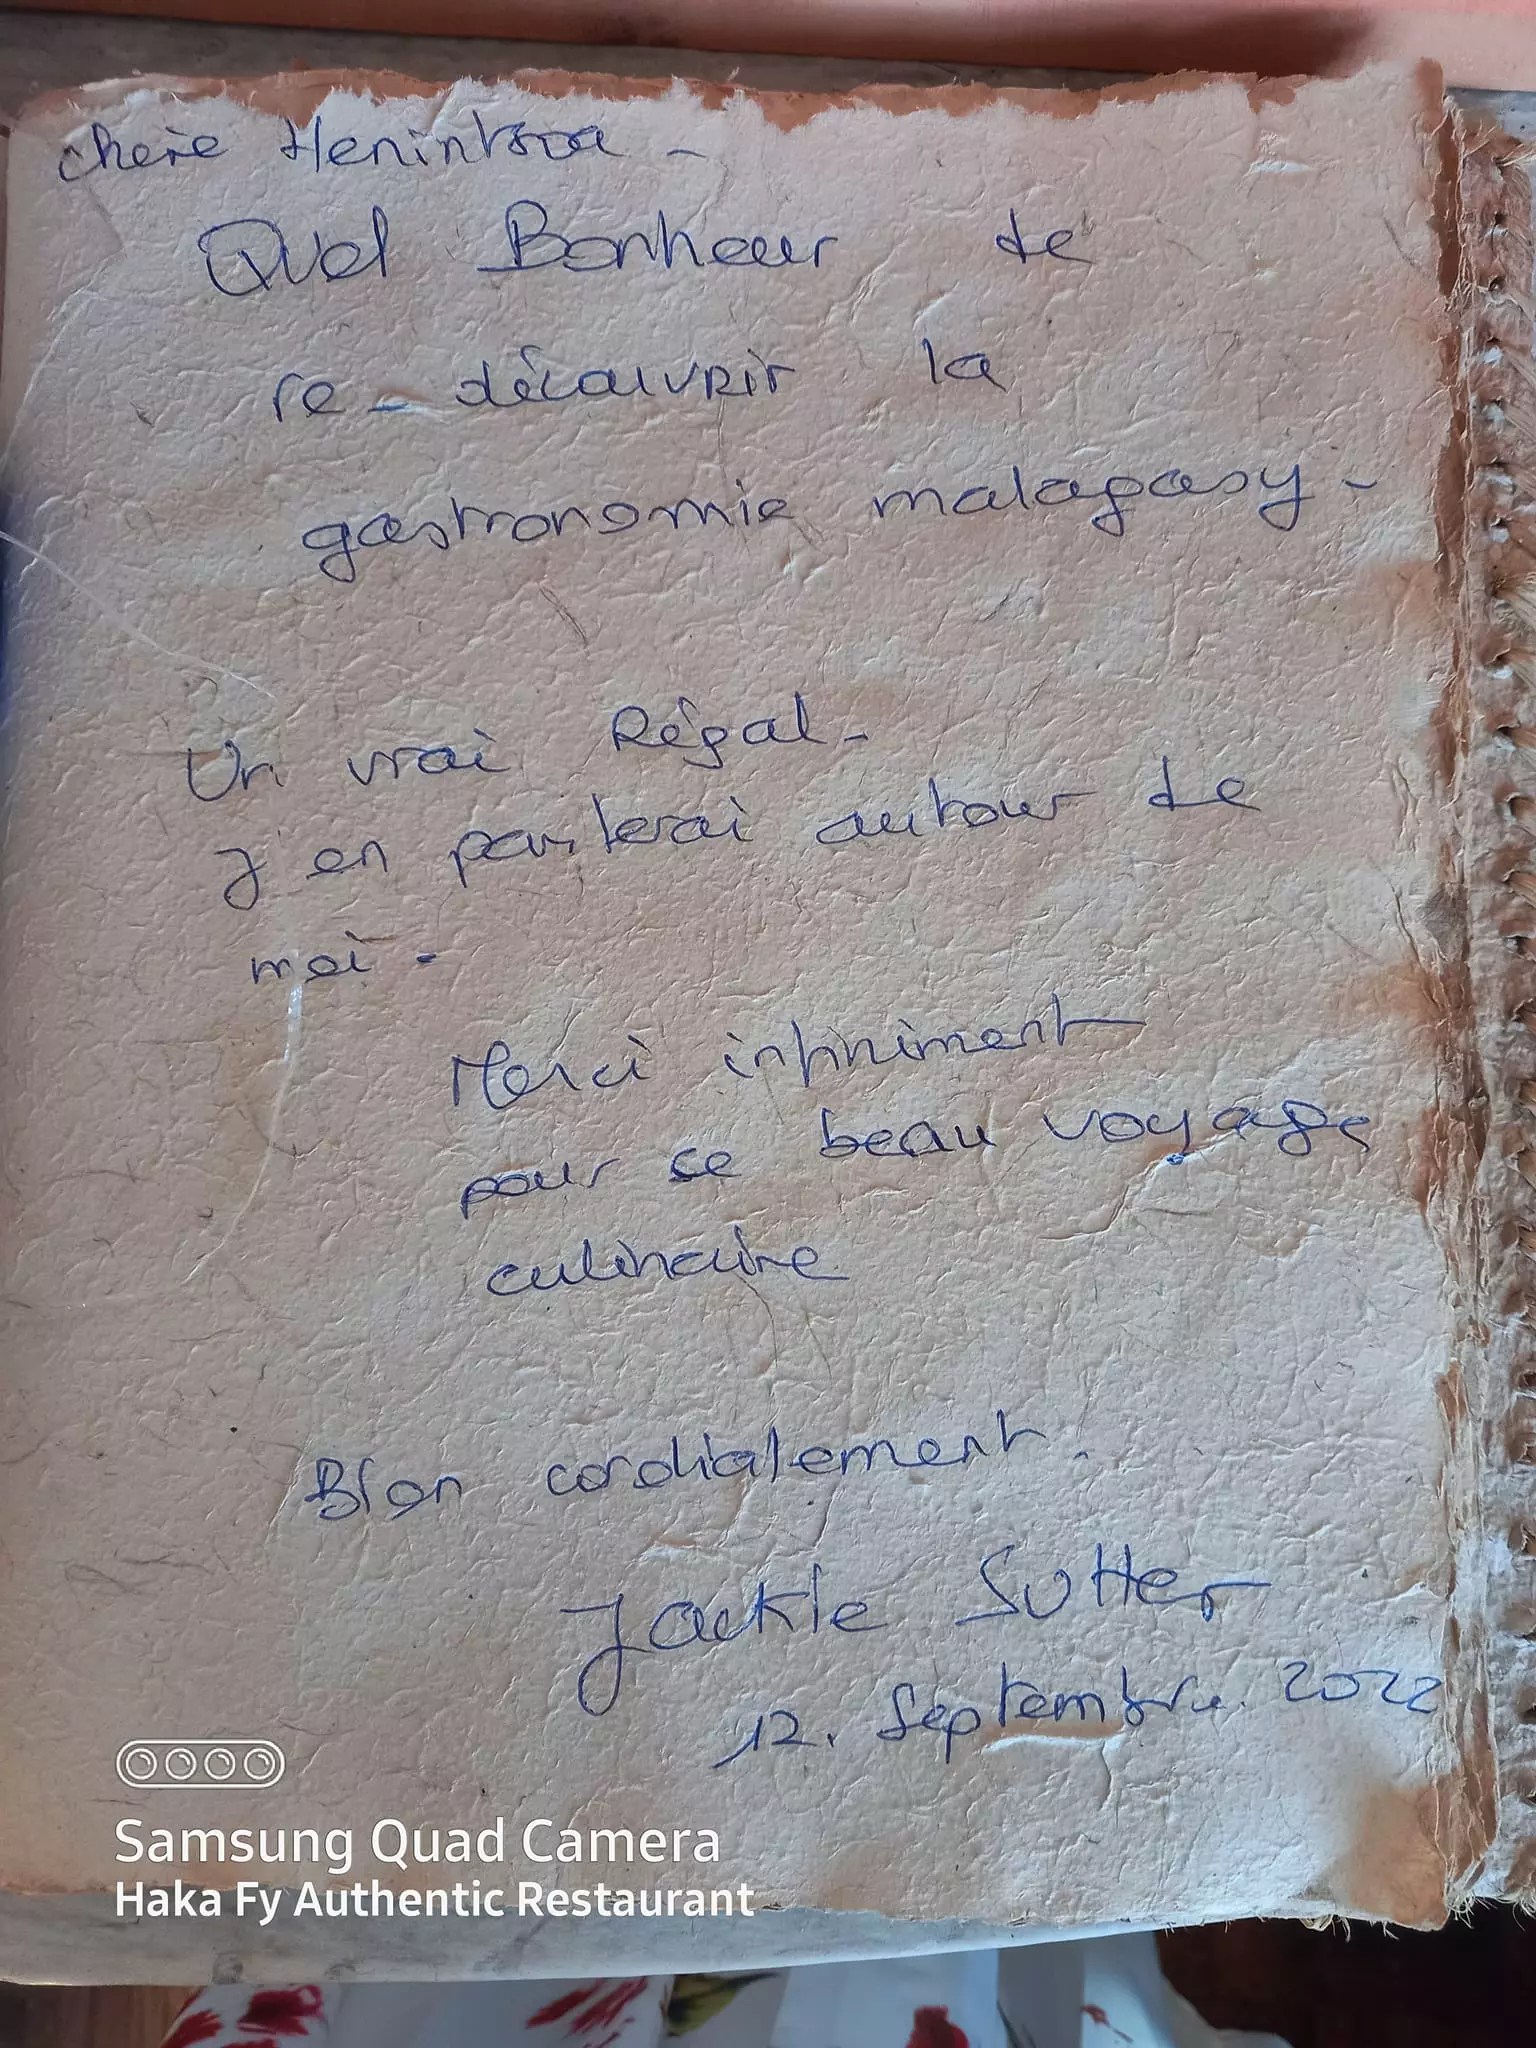 chère Henintsoa -
Quel Bonheur de
re-découvrir la
gastronomie malagasy -
Un vrai Régal -
J'en parlerai autour de
moi.
Merci infiniment
pour ce beau voyage
culinaire
Bien cordialement.
Jackie Sutter
12. Septembre. 2022
Samsung Quad Camera
Haka Fy Authentic Restaurant